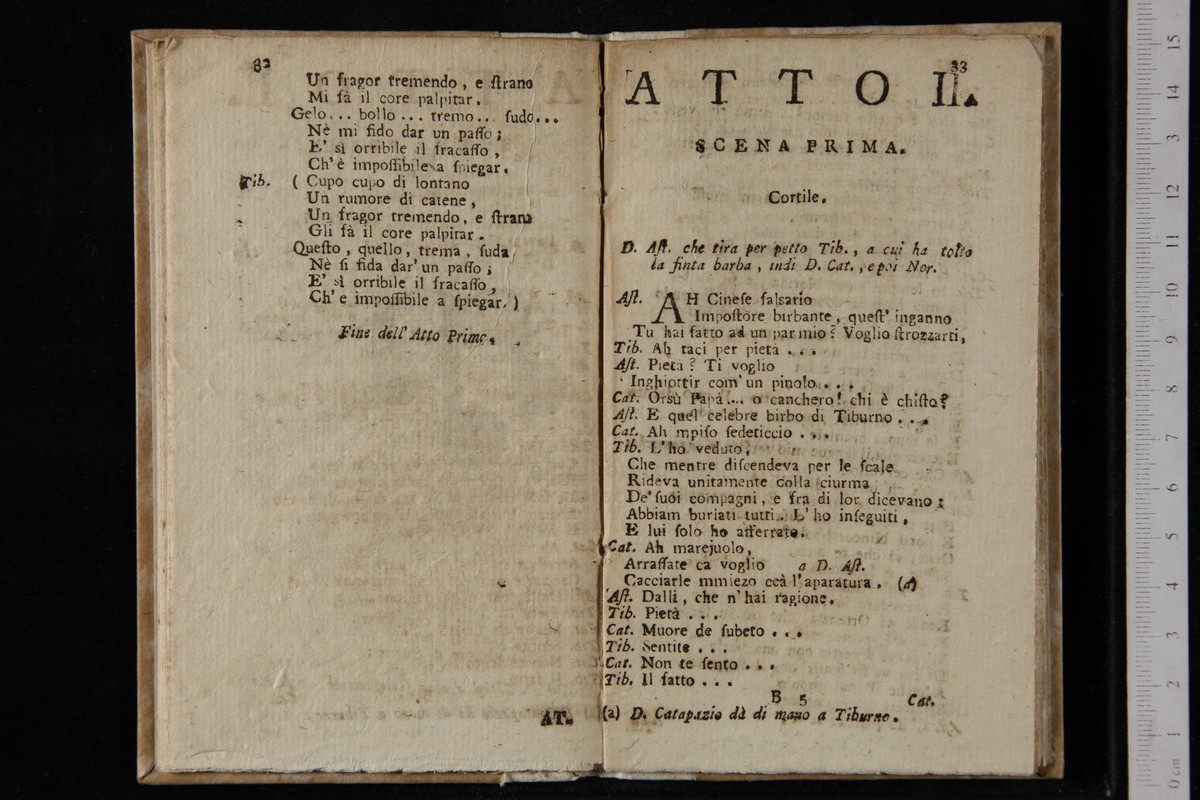 32
Un fragor tremendo, e ſtrano
Mi fà il core palpitar.
Gelo... bollo... tremo.. ſudo...
Nè mi fido dar un paſſo;
E' sì orribile il fracaſſo,
Ch' è impoſſibile a ſpiegar.
Tib. ( Cupo cupo di lontano
Un rumore di catene,
Un fragor tremendo, e ſtrano
Gli fà il core palpitar.
Queſto, quello, trema, ſuda,
Nè ſi fida dar' un paſſo;
E' sì orribile il fracaſſo,
Ch' e impoſſibile a ſpiegar. )
Fine dell' Atto Primo.
AT-
33
ATTO II.
SCENA PRIMA.
Cortile.
D. Aſt. che tira per petto Tib., a cui ha tolto
la finta barba, indi D. Cat., e poi Nor.
Aſt. AH Cineſe falsario
Impoſtore birbante, queſt' inganno
Tu hai fatto ad un par mio? Voglio ſtrozzarti,
Tib. Ah taci per pietà...
Aſt. Pietà? Ti voglio
Inghiottir com' un pinolo...
Cat. Orsù Papà.... o canchero! chi è chiſto?
Aſt. E quel celebre birbo di Tiburno...
Cat. Ah mpiſo ſedeticcio...
Tib. L' ho veduto,
Che mentre diſcendeva per le ſcale
Rideva unitamente colla ciurma
De' ſuoi compagni, e fra di lor dicevano:
Abbiam burlati tutti. L' ho inſeguiti,
E lui ſolo ho afferrato.
Cat. Ah marejuolo,
Arraffate ca voglio a D. Aſt.
Cacciarle mmiezo ccà l' aparatura. (a)
Aſt. Dalli, che n' hai ragione.
Tib. Pietà...
Cat. Muore de ſubeto...
Tib. Sentite...
Cat. Non te ſento...
Tib. Il fatto...
B 5 Cat.
(a) D. Catapazio dà di mano a Tiburno.